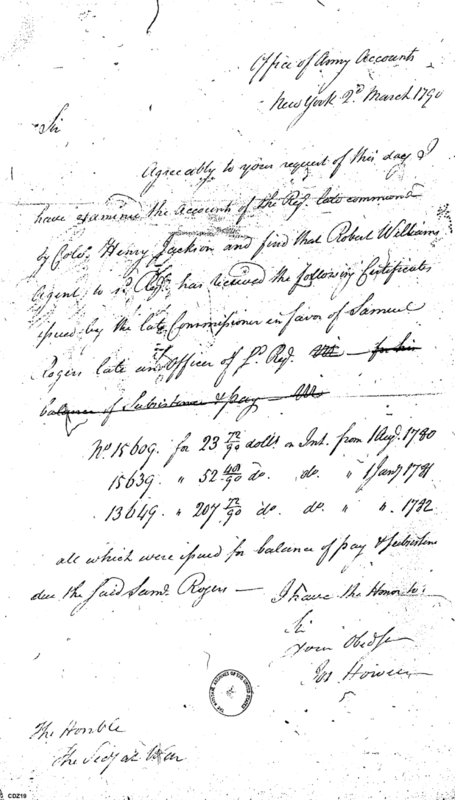 Office of Army Accounts
New York 2d. March 1790
Sir
Agreeably to your request of this day I
have examined the Accounts of the Regt. late command
by Colo. Henry Jackson and find that Robert Williams
Agent to sd. Regt. has received the following Certificates
issued by the late Commissioner in favor of Samuel
Rogers late an Officer of sd. Regt. Viz — for his
balance of Subsistance & pay — Viz
No. 15609. for 23 72/90 dolls. on Int. from 1 Augt. 1780
15639 " 52 48/90 do. do. " 1 Jany 1781
13649. " 207 72/90 do. do. " " . 1782
all which were issued for balance of pay & subsistence
due the said Saml. Rogers —
I have the Honor to:
Sir
Your Obedt
Jos Howell
The Honble
The Secy at War
CDZ19